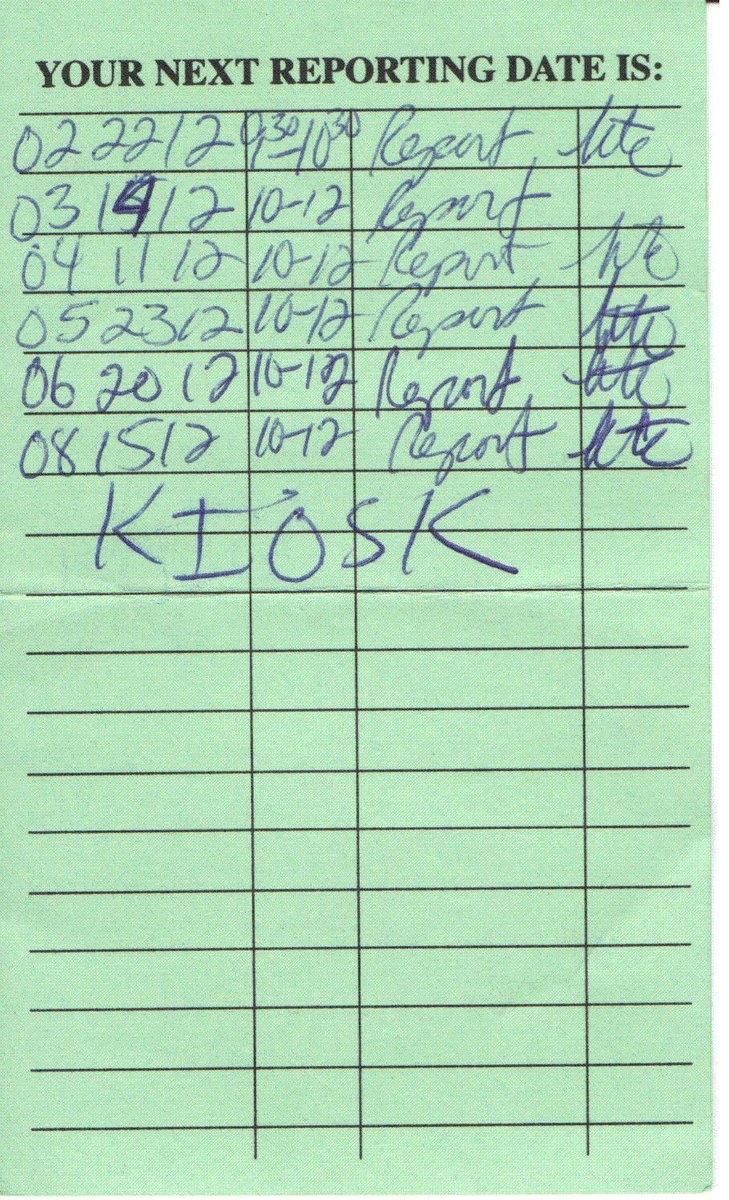 YOUR NEXT REPORTING DATE IS:
02 22 12 9:30-10:30 Report
03 14 12 10-12 Report
04 11 12 10-12 Report
05 23 12 10-12 Report
06 20 12 10-12 Report
08 15 12 10-12 Report
KIOSK